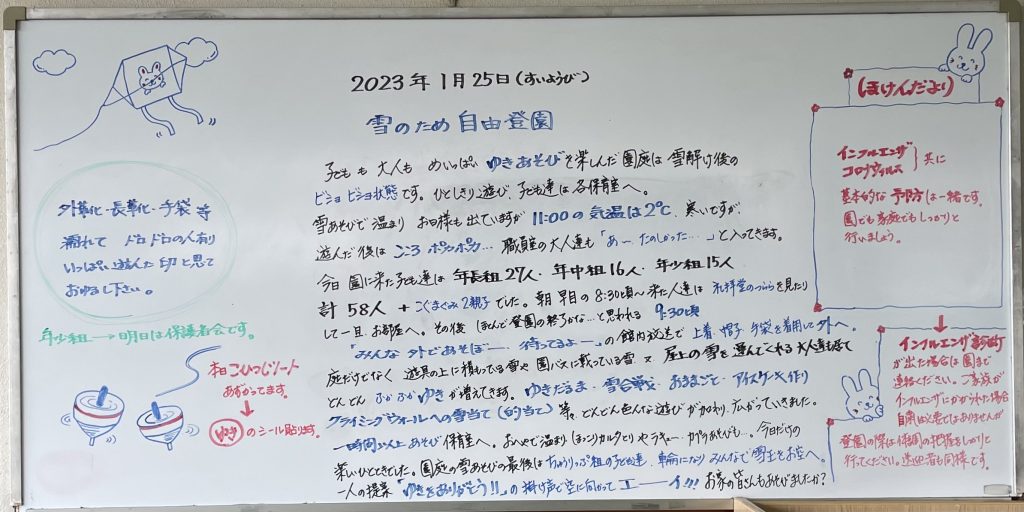 2023年1月25日(すいようび)
雪のため 自由登園
子どもも 大人も めいっぱい ゆきあそびを楽しんだ園庭は 雪解け後の
ビショビショ状態です。ひとしきり遊び、子ども達は各保育室へ。
雪あそびで温まり お日様も出ていますが 11:00の気温は2℃、寒いですが、
遊んだ後は こころ ポッカポカ… 職員室の大人達も「あ〜、たのしかった…」と入ってきます。
今日 園に来た子ども達は 年長組27人・年中組16人・年少組15人
計 58人 + こぐまぐみ2親子でした。朝 早目の8:30頃〜来た人達は 礼拝堂のつららを見たり
して一旦、お部屋へ。その後 ほとんど登園の終了かな…と思われる 9:30頃
「みんな 外であそぼー、待ってるよー」の館内放送で 上着・帽子・手袋を着用して外へ。
庭だけでなく 遊具の上に積もっている雪や 園バスに載っている雪
屋上の雪を運んでくれる大人達
どんどん ふかふかゆきが増えてきます。ゆきだるま・雪合戦・おままごと・アイスケーキ作り
クライミングウォールへの雪当て(的当て)等々、どんどん色んな遊びが加わり、広がっていきました。
一時間以上あそび 保育室へ。おへやで温まり
今日だけの
楽しいひとときでした。園庭の雪あそびの最後は ちゅうりっぷ組の子ども達、輪になり みんなで雪玉をお空へ。
一人の提案「ゆきをありがとう!!」の掛け声で空に向かってエーーイ!!! お家の皆さんもあそびましたか?
外靴・長靴・手袋 等
濡れて ドロドロの人有り
いっぱい遊んだ印と思って
おゆるし下さい。
年少組→明日は保護者会です。
本日こひつじノート
あずかってます。
のシール貼ります。
ほけんだより
インフルエンザ
コロナウィルス
共に
基本的な 予防は一緒です。
園でも家庭でもしっかりと
行いましょう。
インフルエンザ診断
が出た場合は園まで
連絡ください。ご家族が
インフルエンザにかかられた場合
自粛は必要ではありませんが
登園の際は体調の把握をしっかりと
行ってください。送迎者も同様です。